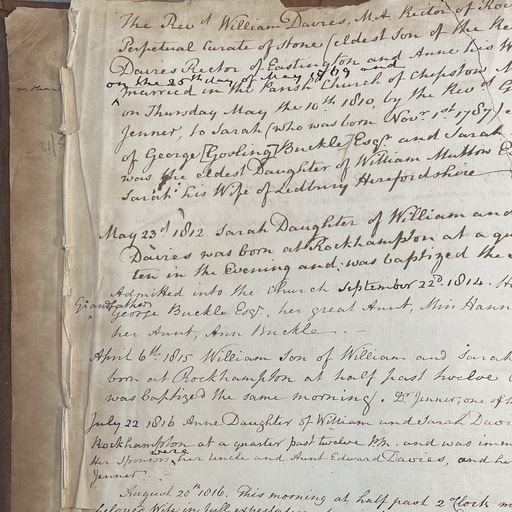 The Revd William Davies, M.A. Rector of Roc
Perpetual Curate of Stone (eldest Son of the Re
Davies Rector of Eastington and Anne his W
on the 25th day of May 1769 and
married in the Parish Church of Chepstow M
on Thursday May the 10th 1810, by the Revd G
Jenner, to Sarah (who was born Novr 1st 1787)
of George [Gooling] Buckle Esqr and Sarah
was the eldest Daughter of William Muttow E
Sarah his Wife of Ledbury Herefordshire
May 23d 1812 Sarah Daughter of William and
Davies was born at Rockhampton at a qu
ten in the Evening and was baptized the
Admitted into the Church September 22d 1814. H
Grandfather
George Buckle Esqr, her great Aunt, Miss Hann
her Aunt, Ann Buckle. —
April 6th 1815 William Son of William and Sarah
born at Rockhampton at half past twelve
was baptized the same morning. Dr Jenner, one of h
July 22 1816 Anne Daughter of William and Sarah Davi
Rockhampton at a quarter past twelve PM. and was imm
Her Sponsors were her uncle and Aunt Edward Davies, and he
Jenner.
August 20th 1816. This morning at half past 2 O'Clock m
beloved Wife in full